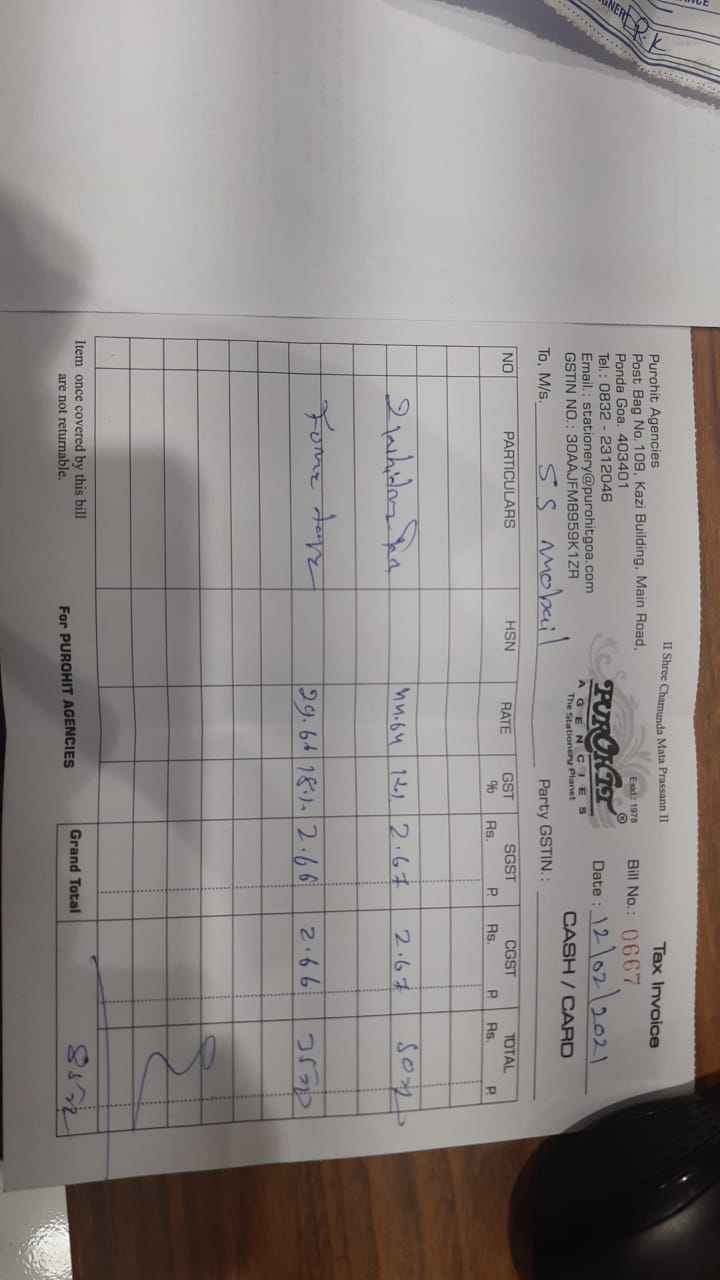 II Shree Chamunda Mata Prassann II
Purohit Agencies
Post Bag No. 109, Kazi Building, Main Road,
Ponda Goa. 403401
Tel.: 0832 - 2312046
Email.: stationery@purohitgoa.com
GSTIN NO.: 30AAJFM8959K1ZR
Estd.: 1978
PUROHIT ®
AGENCIES
The Stationery Planet
Tax Invoice
Bill No.: 0667
Date : 12/02/2021
CASH / CARD
To, M/s. SS mobail Party GSTIN.:
NO PARTICULARS HSN RATE GST % SGST Rs. P. CGST Rs. P. TOTAL Rs. P.
44.64 12% 2.67 2.67 50
29.66 18% 2.66 2.66 35
Grand Total 85
Item once covered by this bill
are not returnable.
For PUROHIT AGENCIES